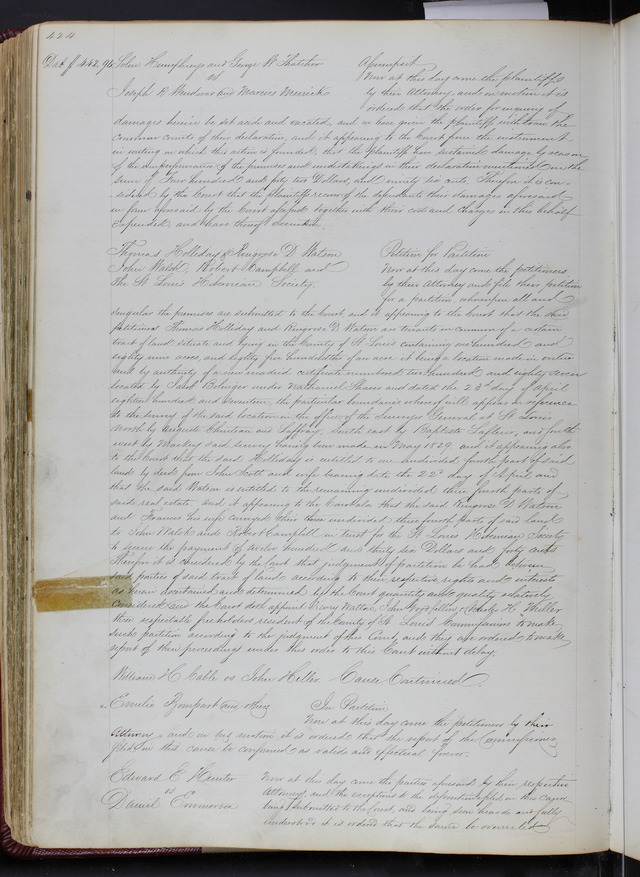 424
John Humphreys and George W Thatcher Assumpsit
vs Now at this day came the plaintiffs
Joseph R and Marcus Merrick by their Attorney and on motion it is
ordered that the order for inquiry of
damages herein be set aside and vacated, and on leave given the plaintiffs withdraw the
common counts of their declaration, and it appearing to the Court from the instrument
in writing on which this action is founded, that the plaintiffs have sustained damages by reason
of the nonperformance of the promises and undertakings in their declaration mentioned in the
sum of Four hundred and fifty two Dollars, and ninety six cents. Therefore it is con-
sidered by the Court that the plaintiffs recover of the defendants their damages aforesaid
in form aforesaid by the Court assessed together with their costs and charges in this behalf
expended, and have thereof Execution.
Thomas Holladay & Ringrose D Watson Petition for Partition
John Walsh, Robert Campbell and Now at this day come the petitioners
the St Louis Hibernian Society. by their Attorney and file their petition
for a partition, whereupon all and
singular the premises are submitted to the Court and it appearing to the Court that the said
petitioners Thomas Holladay and Ringrose D Watson are tenants in common of a certain
tract of land situate and lying in the County of St Louis containing one hundred and
eighty nine acres, and eighty five hundredths of an acre it being a location made in virtue
and by authority of a new madrid certificate numbered two hundred and eighty seven
located by under Nathaniel and dated the 23d day of April
eighteen hundred and nineteen, the particular boundaries whereof will appear in reference
to the survey of the said location in the office of the Surveyor General at St Louis
North by Auguste Chouteau and South east by Baptiste and further
west by Mackay said survey having been made in May 1829, and it appearing also
to the Court that the said Holladay is entitled to one undivided fourth part of said
land by deed from John Scott and wife bearing date the 22d day of April and
that the said Watson is entitled to the remaining undivided three fourth parts of
said real estate, and it appearing to the Court also that the said Ringrose D Watson
and Frances his wife conveyed their three undivided three fourth parts of said land
to John Walsh and Robert Campbell in trust for the St Louis Hibernian Society
to secure the payment of twelve hundred and thirty six Dollars and forty cents
Therefore it is considered by the Court that judgment of partition be had between
said parties of said tract of land according to their respective rights and interests
as now ascertained and determined by the Court quantity and quality relatively
considered and the Court doth appoint John Goodfellow,
three respectable freeholders resident of the County of St Louis Commissioners to make
such partition according to the judgment of this Court, and they are ordered to make
report of their proceedings under this order to this Court without delay.
William H Cable vs John Heller. Cause Continued.
Emilie In Partition
Now at this day came the petitioners by their
Attorney, and on his motion it is ordered that the report of the Commissioners
filed in this cause be confirmed as valid and effectual forever.
Edward E Hunter Now at this day came the parties aforesaid by their respective
vs Attorneys, and the exceptions to the deposition filed in this cause
Daniel Emmerson being submitted to the Court, and being seen heard and fully
understood it is ordered that the same be overruled